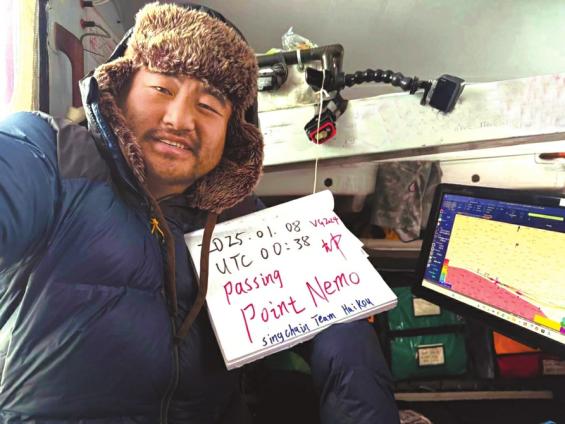 2025.01.08 VG2024
UTC 00:38
Passing
Point Nemo
singchain Team Haikou